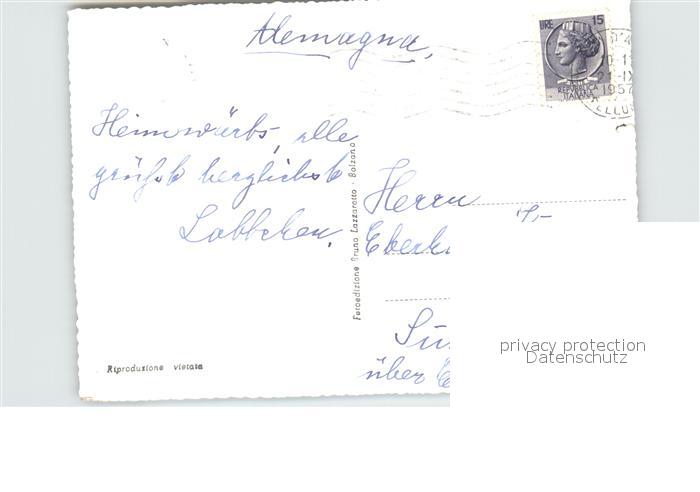 Alemagna,
LIRE 15
REPVBBLICA
ITALIANA
1957
Heimwärts, alle
grüßt herzlichst
Herrn
Eberh
über
4,-
Fotoedizione Bruno Lazzarotto - Bolzano
Riproduzione vietata
privacy protection
Datenschutz